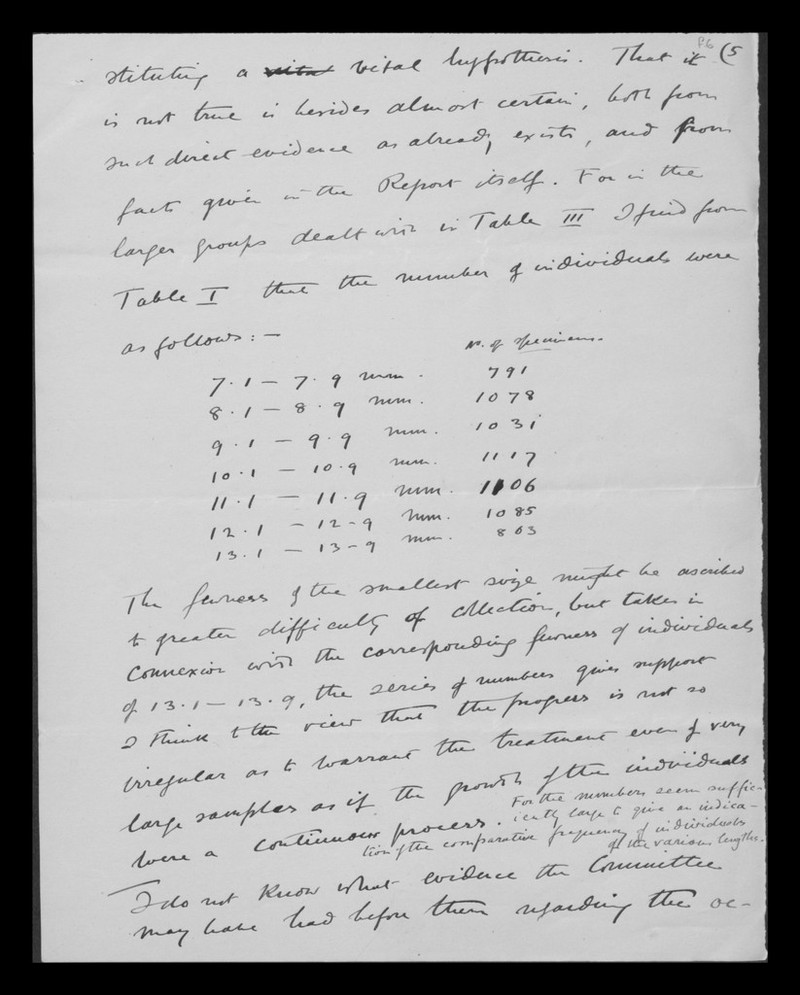 P6 (5
stituting a vital vital hypothesis. That it
is not true is besides almost certain, both from
such direct evidence as already exists, and from
facts given in the Report itself. For in the
larger groups dealt with in Table III I find from
Table I that the number of individuals were
as follows:—
No. of specimens.
7.1 — 7.9 mm. 791
8.1 — 8.9 mm. 1078
9.1 — 9.9 mm. 1031
10.1 — 10.9 mm. 1117
11.1 — 11.9 mm. 1106
12.1 — 12-9 mm. 1085
13.1 — 13-9 mm. 803
The fewness of the smallest size might be ascribed
to greater difficulty of collection, but taken in
connexion with the corresponding fewness of individuals
of 13.1 — 13.9, the series of numbers gives support
I think to the view that the progress is not so
irregular as to warrant the treatment even of very
large samples as if the growth of the individuals
were a continuous process. For the numbers seem suffic-
iently large to give an indica-
tion of the comparative frequency of individuals
of the various lengths.
I do not know what evidence the Committee
may have had before them regarding the oc-